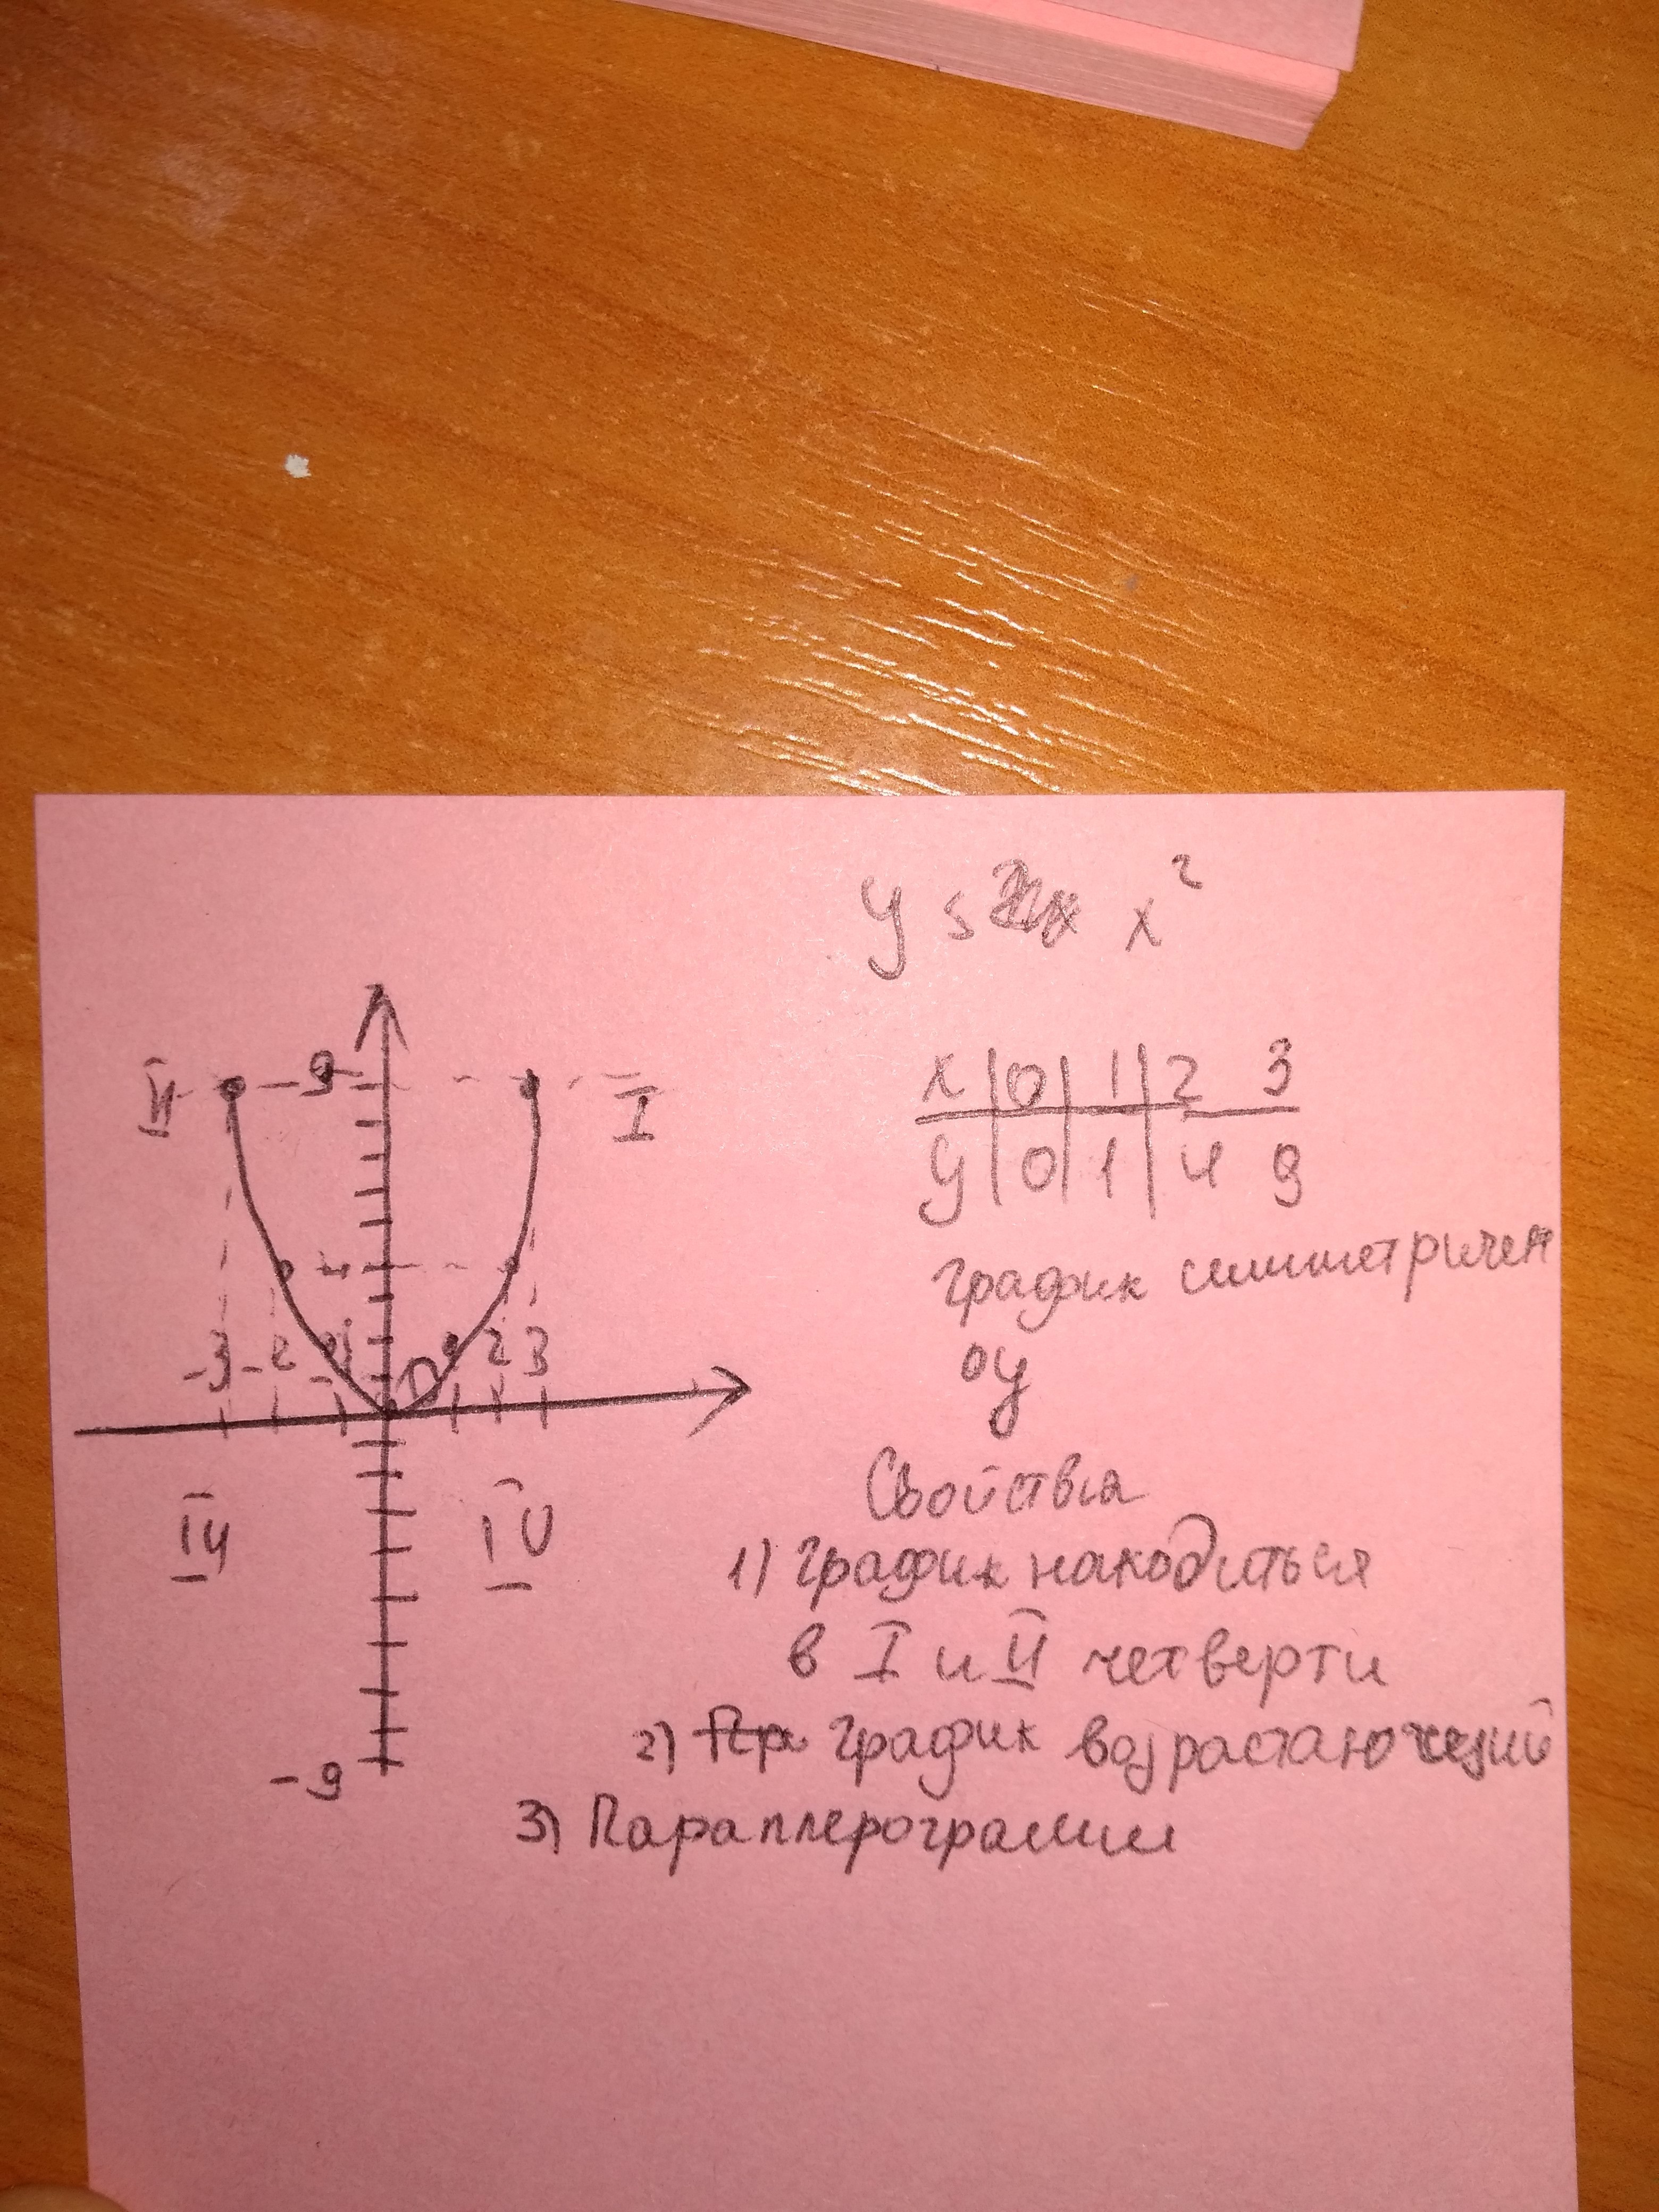 y = x²
x | 0 | 1 | 2 3
y | 0 | 1 | 4 9
график симметричен
оу
Свойства
1) график находиться
в I и II четверти
2) график возрастающий
3) Параплерограмм
II -9 I
4
-3 -2 -1 0 1 2 3
III IV
-9